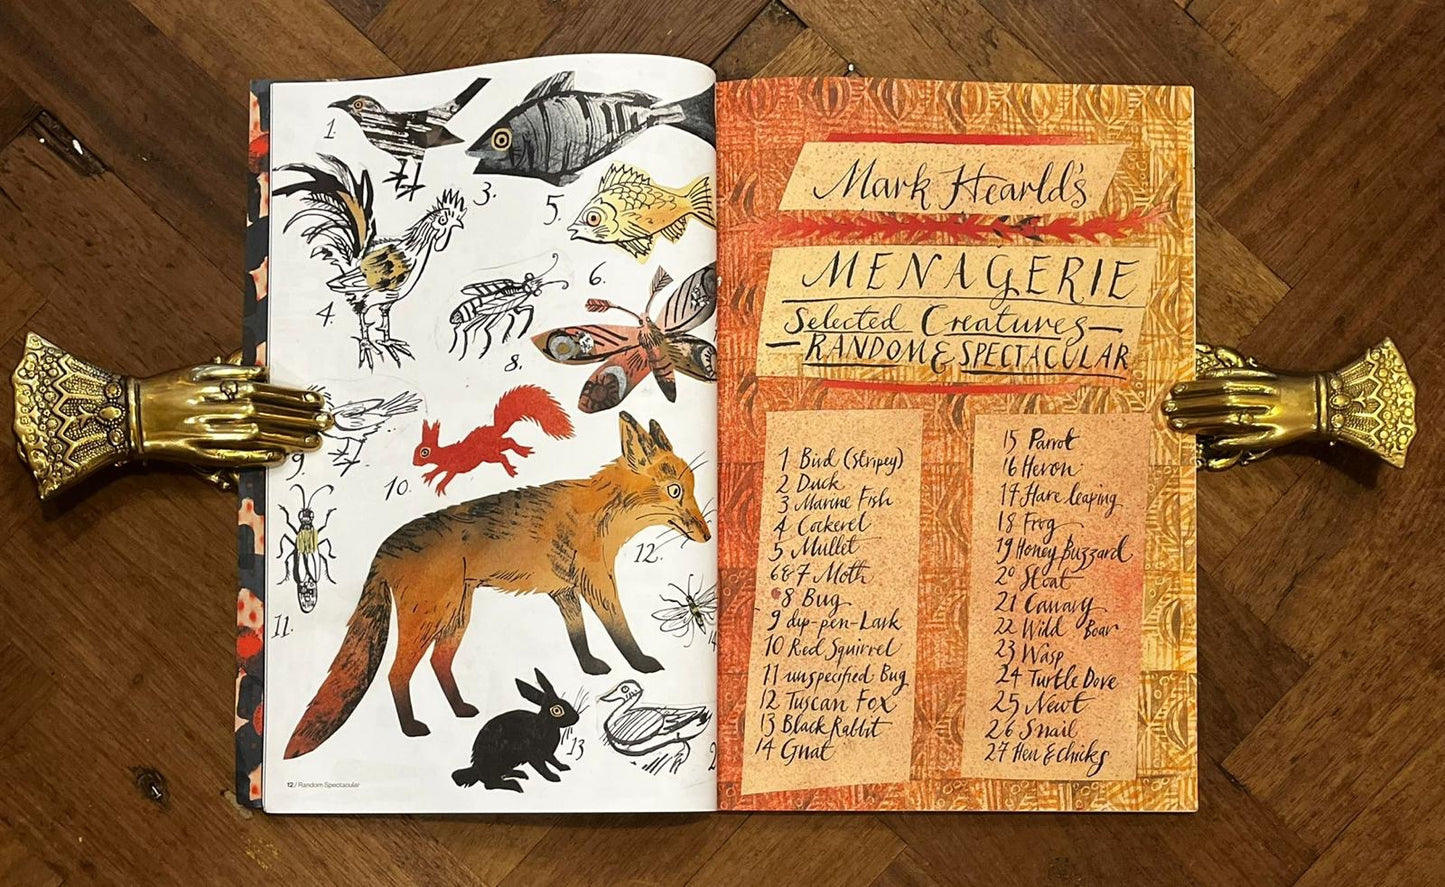 1.
3.
5.
4.
6.
8.
9
10.
12.
11.
14
13
2
12 / Random Spectacular
Mark Hearld's
MENAGERIE
Selected Creatures—
—RANDOM & SPECTACULAR
1 Bird (Stripey)
2 Duck
3 Marine Fish
4 Cockerel
5 Mullet
6&7 Moth
8 Bug
9 dip-pen-Lark
10 Red Squirrel
11 unspecified Bug
12 Tuscan Fox
13 Black Rabbit
14 Gnat
15 Parrot
16 Heron
17 Hare leaping
18 Frog
19 Honey Buzzard
20 Stoat
21 Canary
22 Wild Boar
23 Wasp
24 Turtle Dove
25 Newt
26 Snail
27 Hen & Chicks